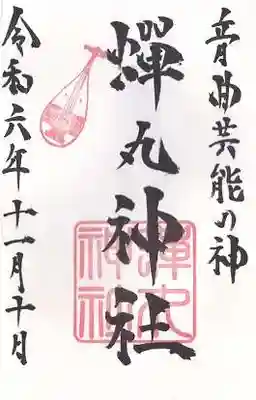 音曲芸能の神
蟬丸神社
令和六年十一月十日
蟬丸
神社